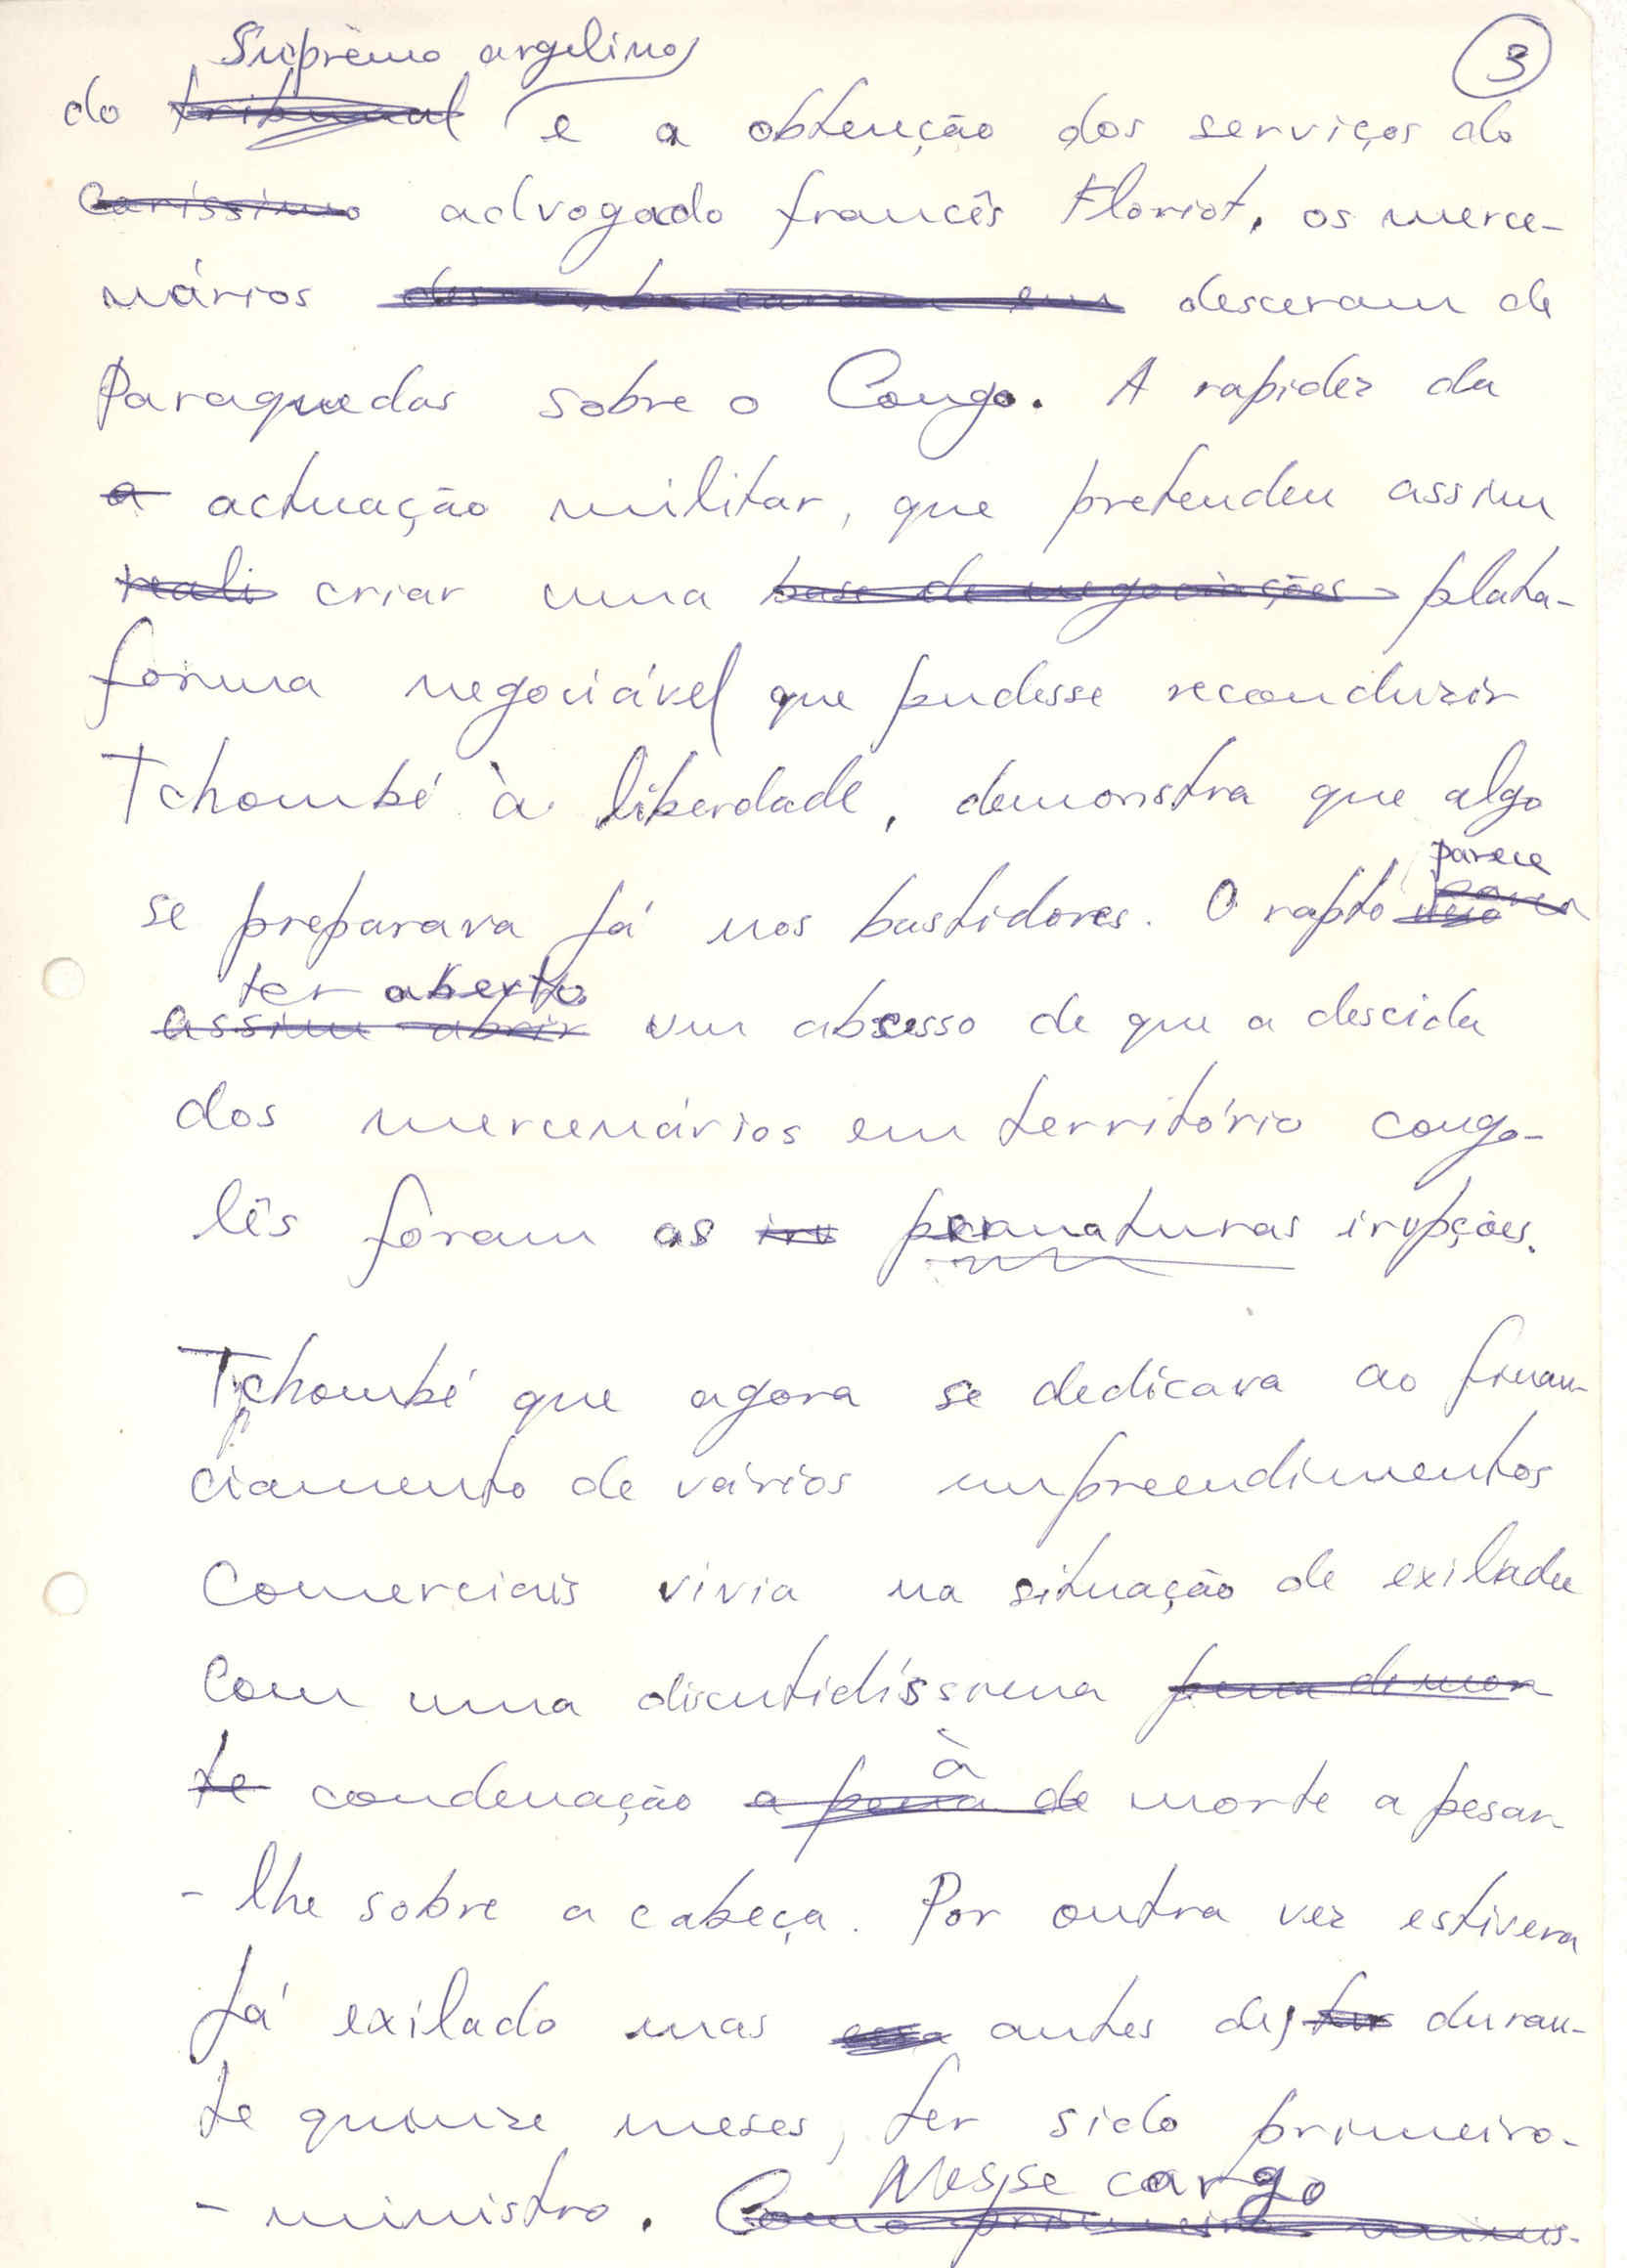 Suprêmo argelino
3
do tribunal e a obtenção dos serviços do
caríssimo advogado francês Floriot, os merce-
nários desembarcaram em desceram de
Paraquedas sobre o Congo. A rapidez da
a actuação militar, que pretendeu assim
reali criar uma base de negociações plata-
forma negociável que pudesse reconduzir
Tchombé à liberdade, demonstra que algo
parece
se preparava já nos bastidores. O rapto veio
ter aberto
assim abrir um abcesso de que a descida
dos mercenários em território congo-
lês foram as iru prematuras irupções.
Tchombé que agora se dedicava ao finan-
ciamento de vários empreendimentos
comerciais vivia na situação de exilado
com uma discutidíssima pena de mor
à
te condenação a pena de morte a pesar-
-lhe sobre a cabeça. Por outra vez estivera
já exilado mas essa antes de, ter duran-
te quinze meses, ter sido primeiro-
Nesse cargo
-ministro. Como primeiro minis-